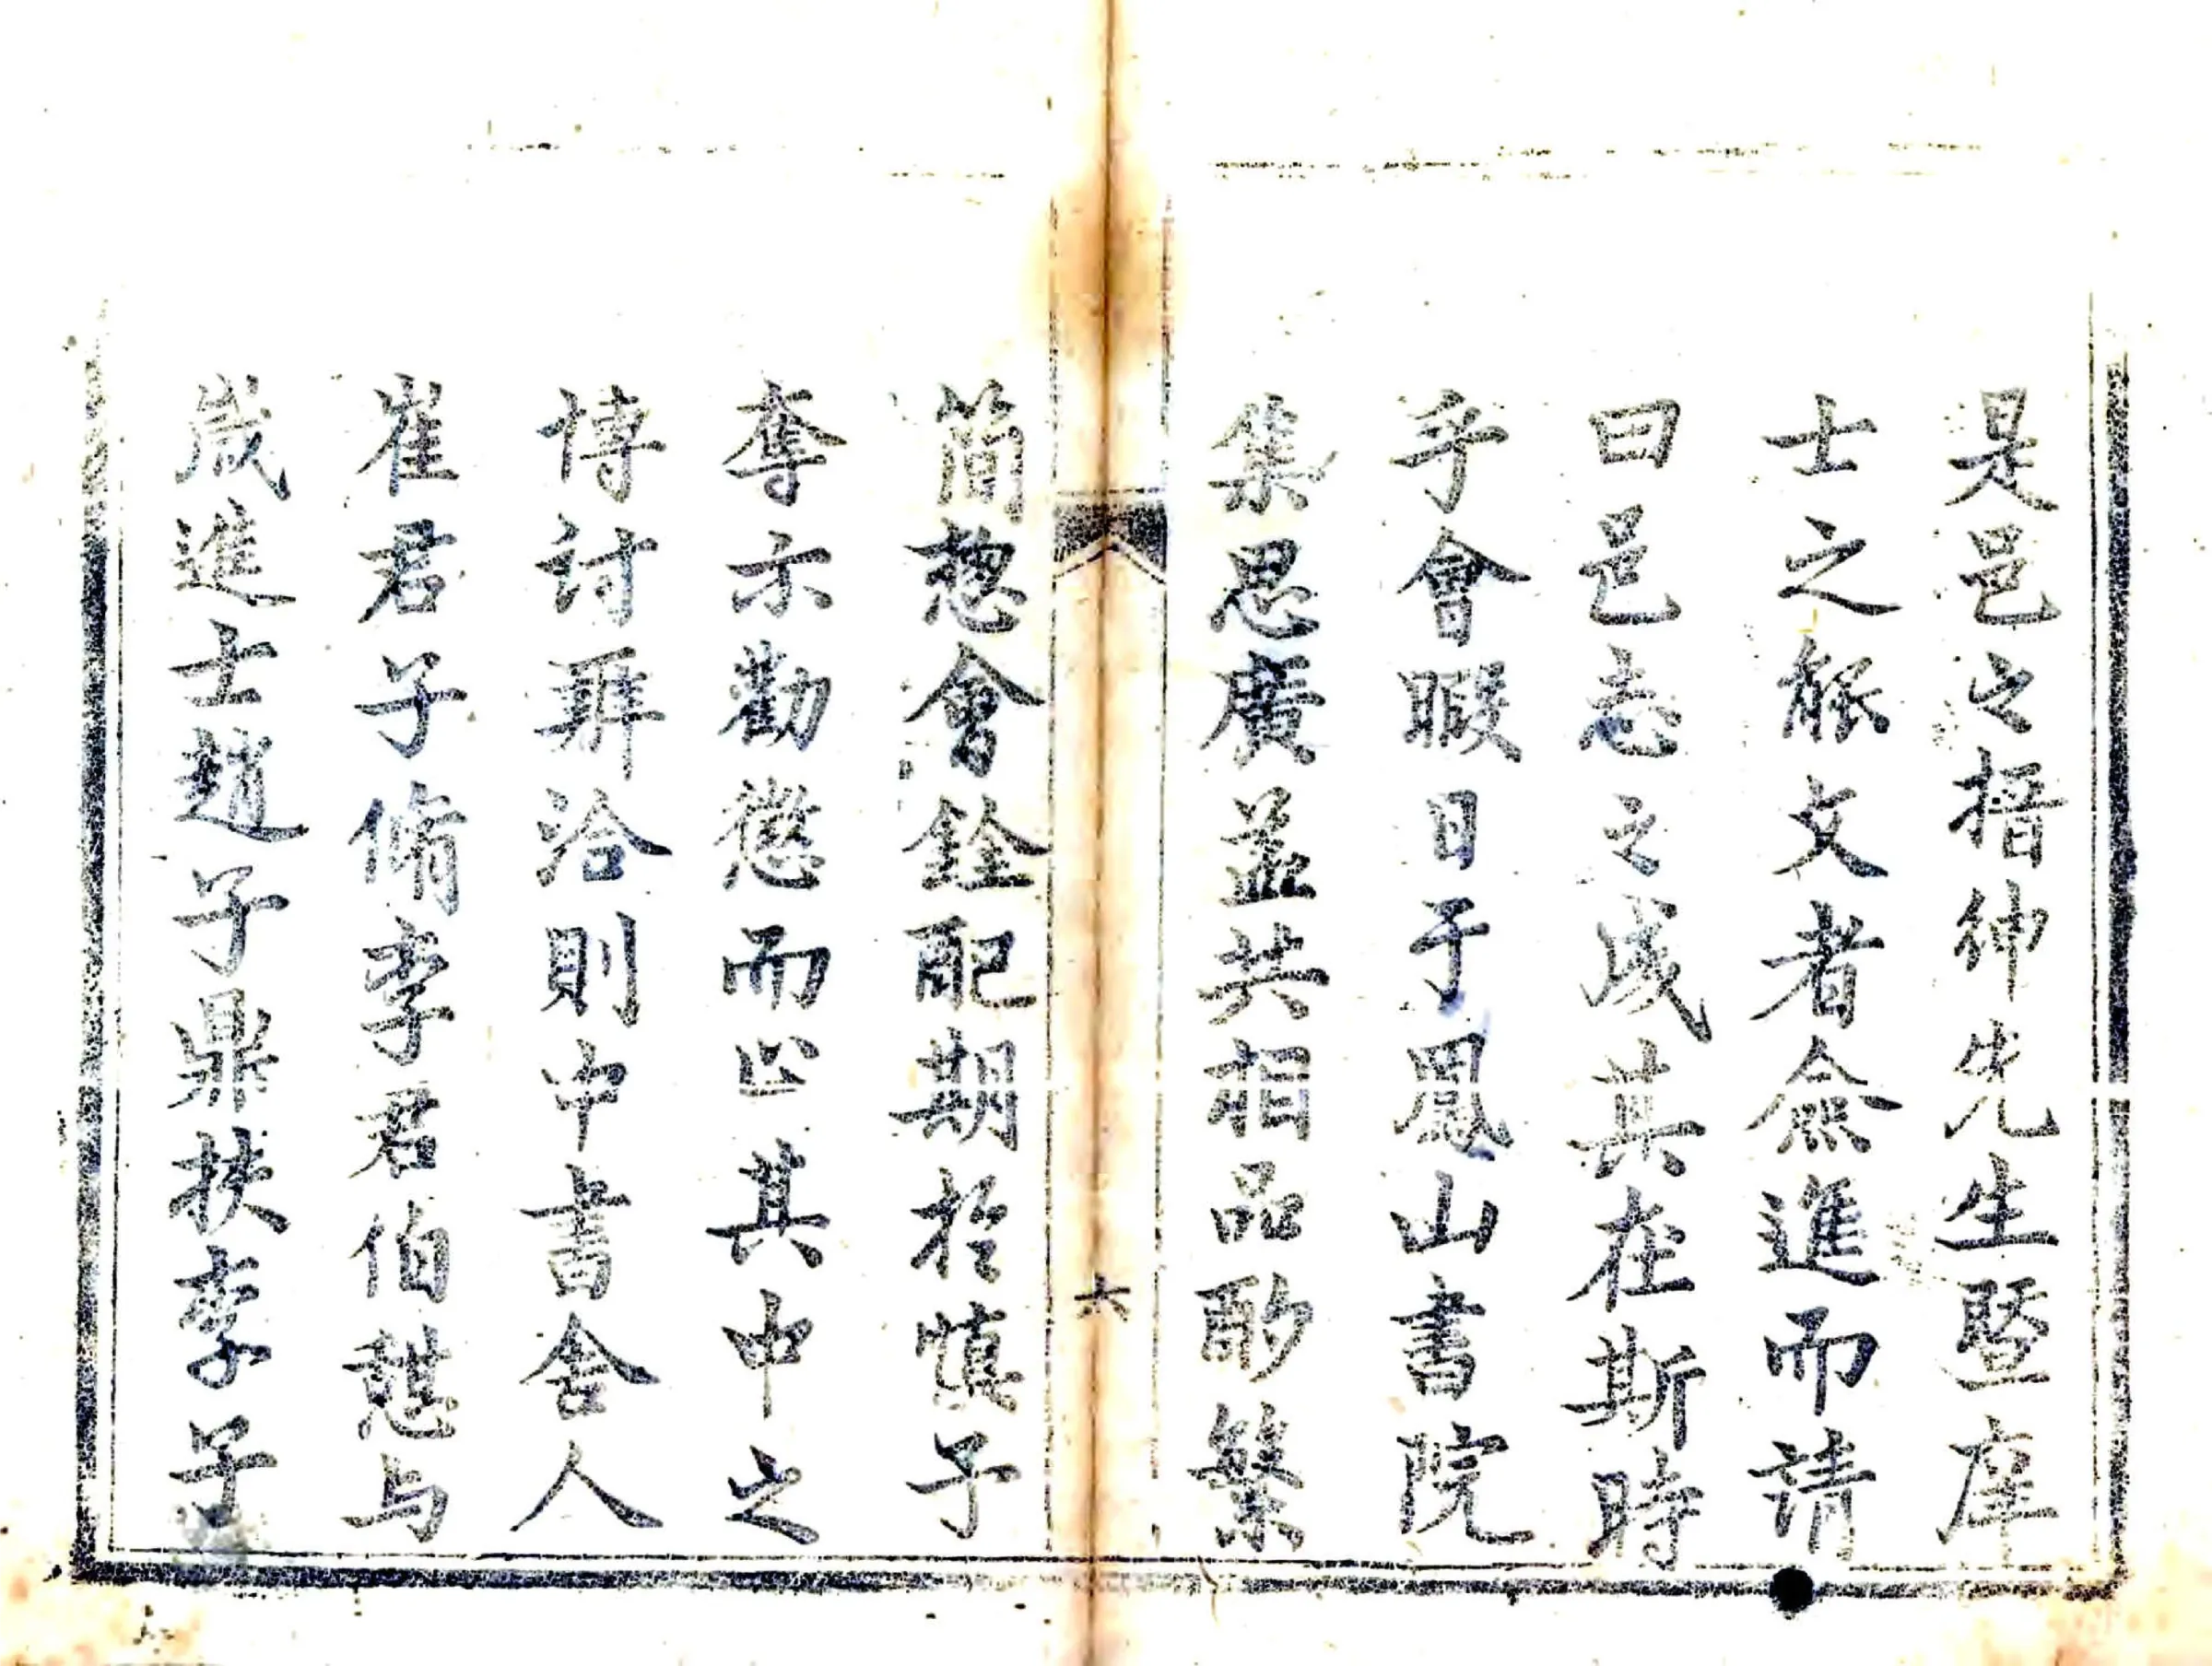 是邑之搢紳先生暨庠
士之能文者僉進而請
曰邑志之成其在斯時
乎會暇日于鳳山書院
集思廣益共相品酌繁
六
簡總會銓配期於慎予
奪示勸懲而止其中之
博討研洽則中書舍人
崔君子脩李君伯諶与
歲進士趙子鼎扶李子